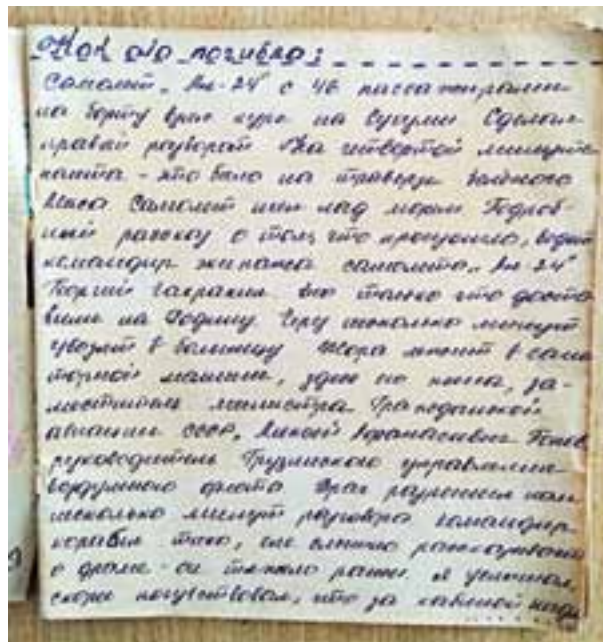 Как она погибла:
Самолет „Ан-24" с 46 пассажирами
на борту взял курс на Сухуми Сделал
правый разворот На четвертой минуте
полёта - это было на траверзе Зелёного
Мыса Самолет шел над морем Подроб-
ный рассказ о том, что произошло, ведет
командир экипажа самолета „Ан-24"
Георгий Чахракия Его только что доста
вили на Родину. Через несколько минут
увезут в больницу Жора лежит в сани
тарной машине, здесь же
меститель министра Гражданской
авиации СССР, Алексей
руководитель Грузинского управления
воздушного флота Врач разрешил нам
несколько минут разговора командир
корабля тихо, еле слышно рассказывает
о драме - он тяжело ранен. Я услышал,
скорее почувствовал, что за кабиной